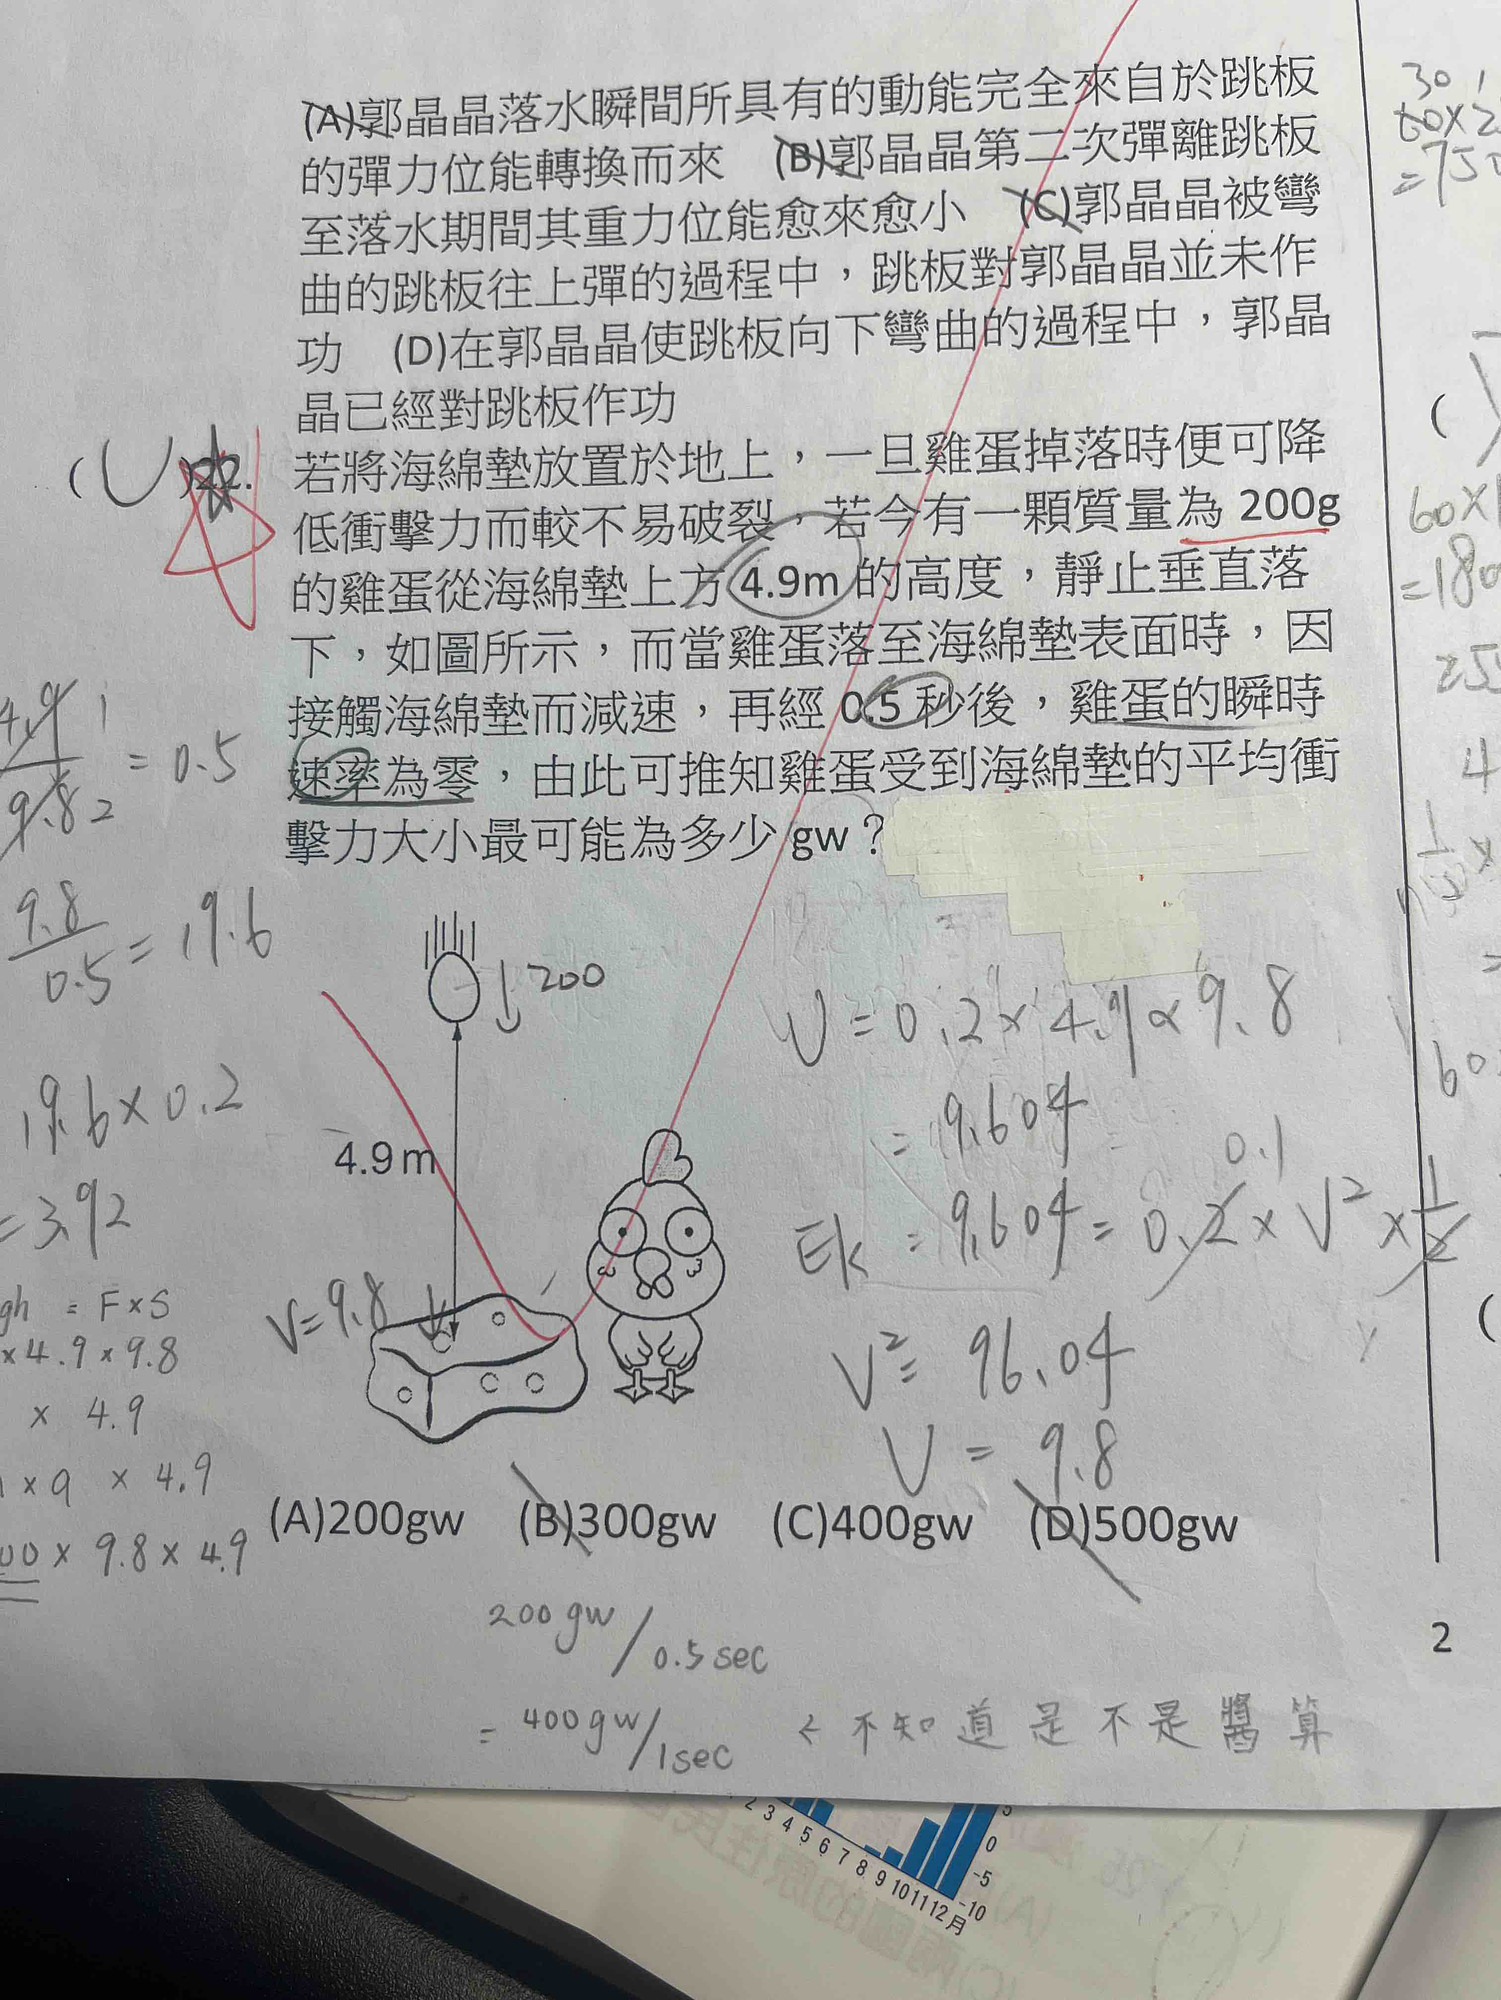 (A)郭晶晶落水瞬間所具有的動能完全來自於跳板
的彈力位能轉換而來 (B)郭晶晶第二次彈離跳板
至落水期間其重力位能愈來愈小 (C)郭晶晶被彎
曲的跳板往上彈的過程中，跳板對郭晶晶並未作
功 (D)在郭晶晶使跳板向下彎曲的過程中，郭晶
晶已經對跳板作功
( )22.
若將海綿墊放置於地上，一旦雞蛋掉落時便可降
低衝擊力而較不易破裂，若今有一顆質量為 200g
的雞蛋從海綿墊上方 4.9m 的高度，靜止垂直落
下，如圖所示，而當雞蛋落至海綿墊表面時，因
接觸海綿墊而減速，再經 0.5 秒後，雞蛋的瞬時
速率為零，由此可推知雞蛋受到海綿墊的平均衝
擊力大小最可能為多少 gw？
4.9 1
9.8 2
= 0.5
9.8
0.5
= 19.6
19.6 × 0.2
= 3.92
gh = F×S
×4.9×9.8
× 4.9
× 9 × 4.9
00 × 9.8 × 4.9
200
4.9m
V=9.8
U = 0.2 × 4.9 × 9.8
= 9.604
0.1
Ek = 9.604 = 0.2 × V² × 1/2
V² = 96.04
V = 9.8
(A)200gw (B)300gw (C)400gw (D)500gw
200gw/0.5sec
= 400gw/1sec ← 不知道是不是醬算
2
30
60×2
=750
60×1
=180
25
4
1
60
2 3 4 5 6 7 8 9 10 11 12 月
5
0
-5
-10